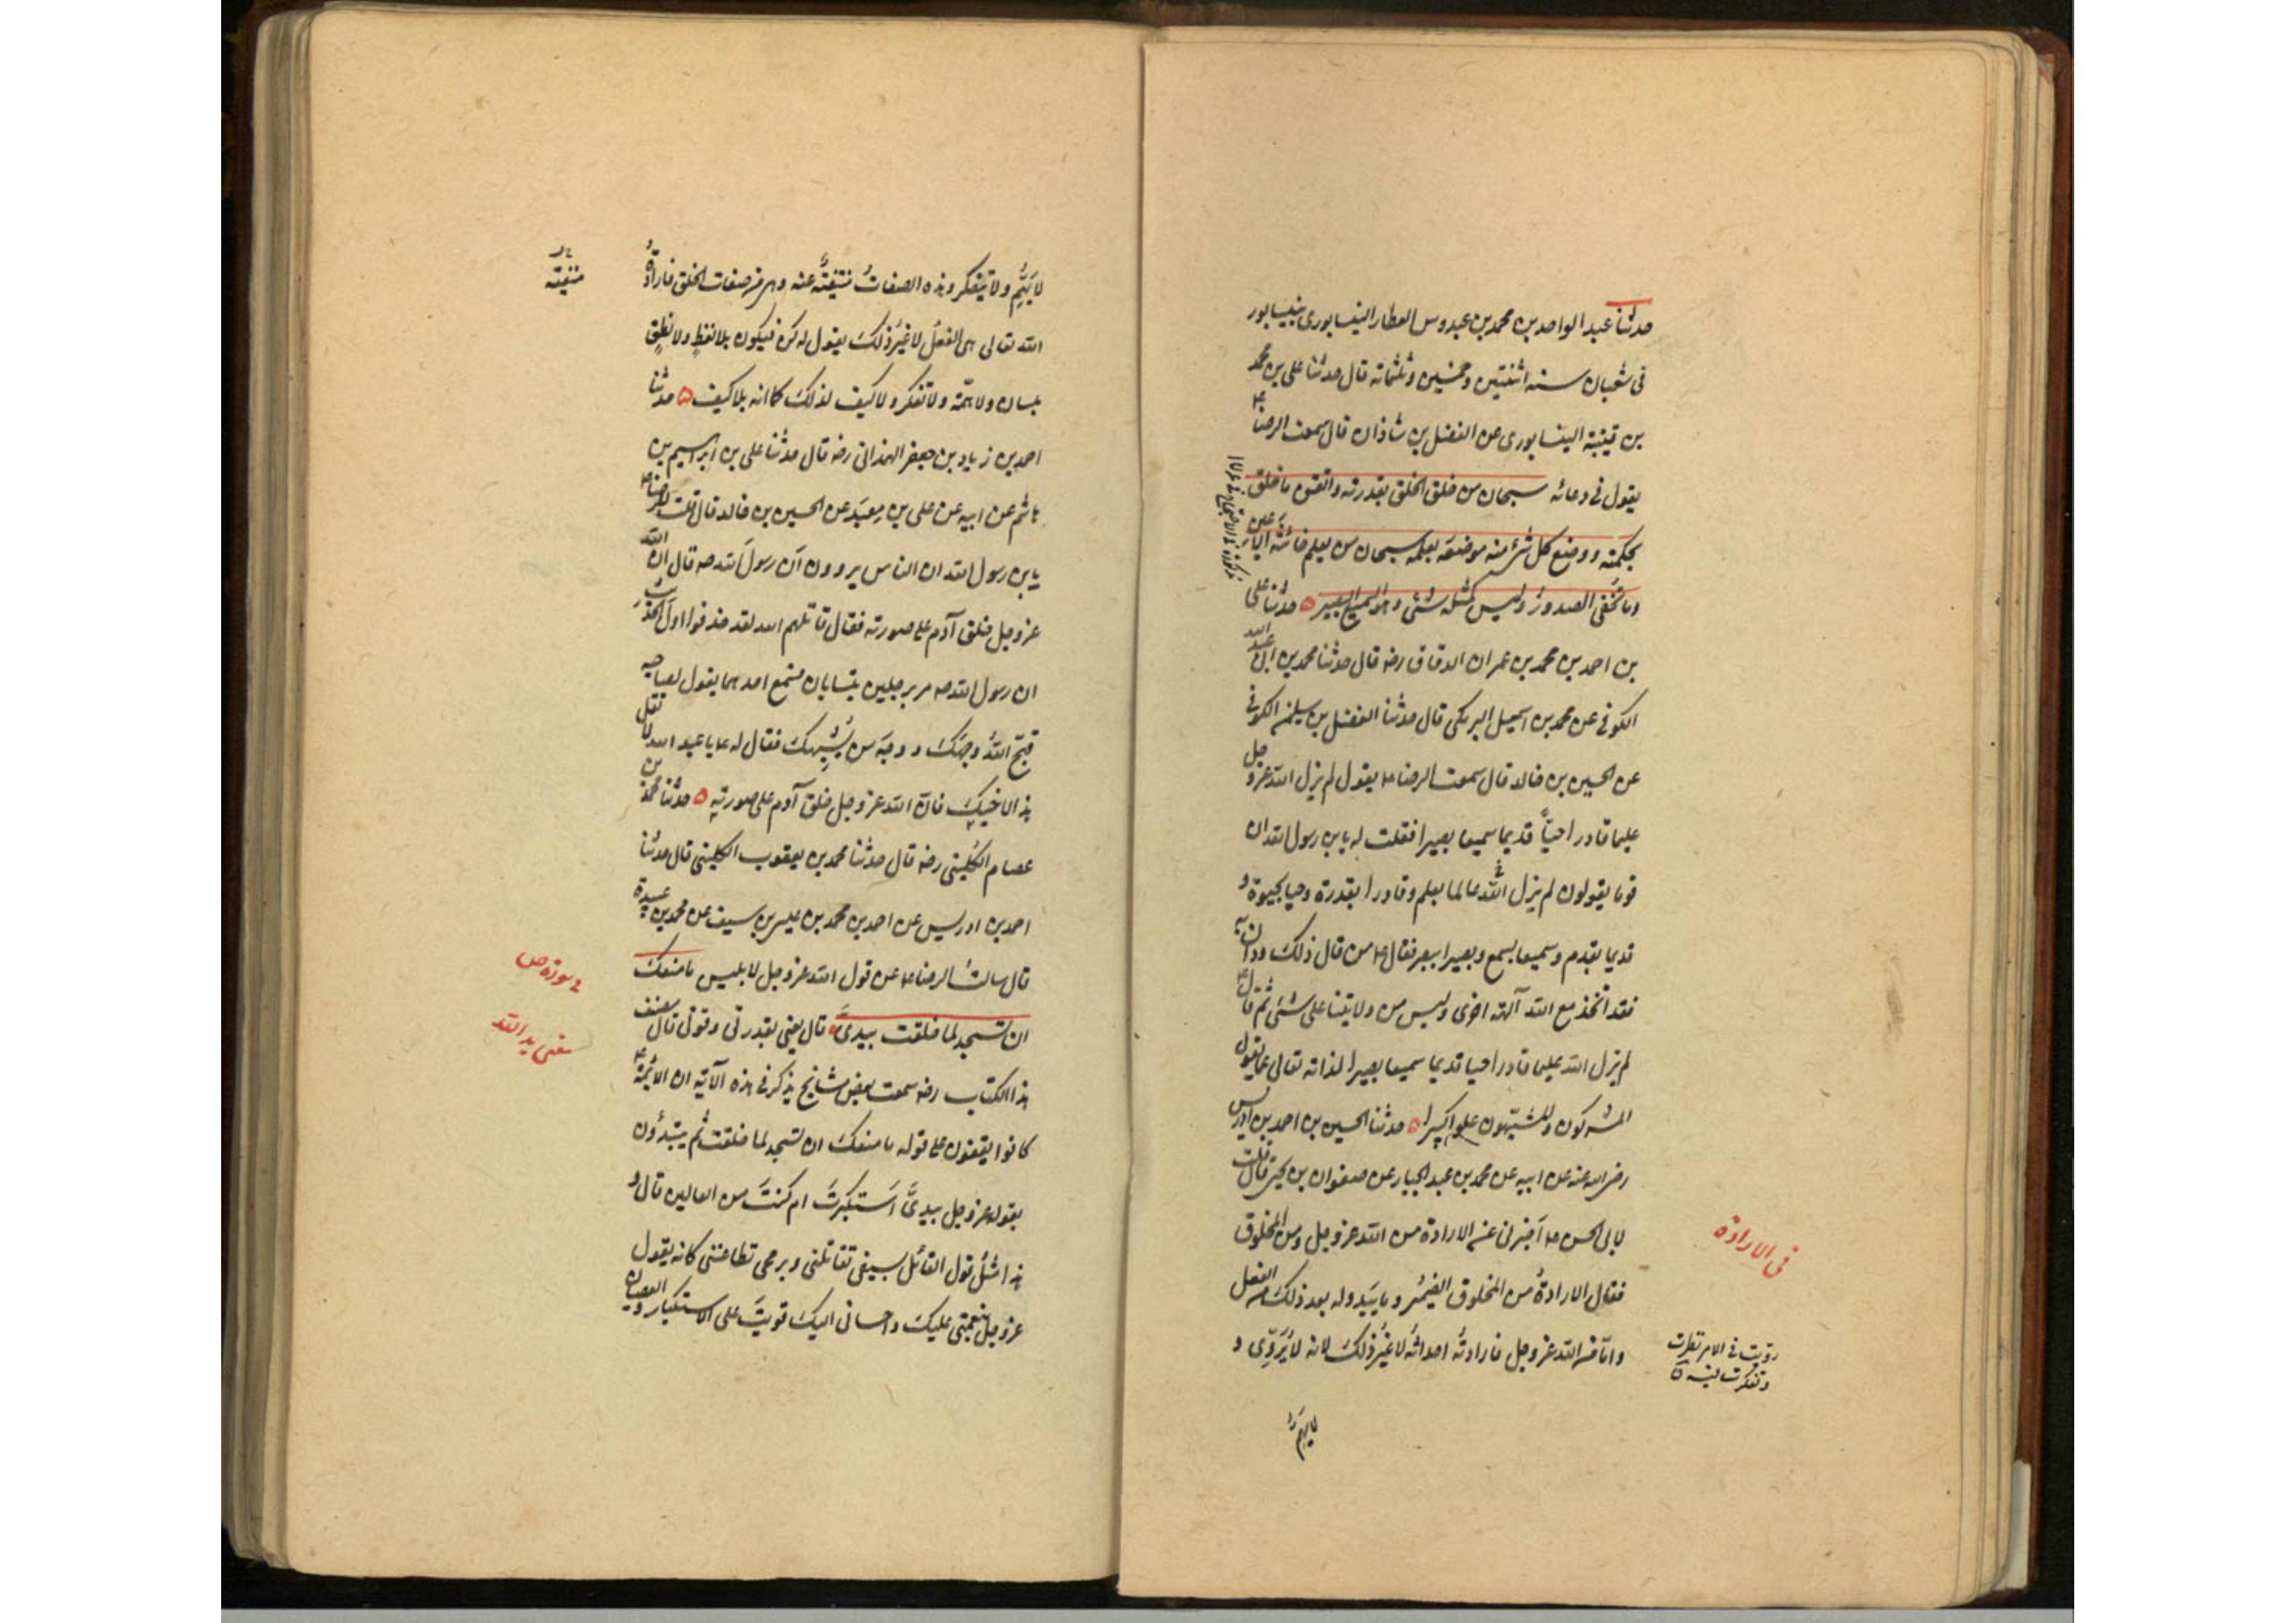 حدثنا عبد الواحد بن محمد بن عبدوس العطار النيسابورى بنيسابور
فى شعبان سنه اثنتين و خمسين و ثلثمائة قال حدثنا على بن محمد
بن قتيبة النيسابورى عن الفضل بن شاذان قال سمعت الرضا ع
يقول فى دعائه سبحان من خلق الخلق بقدرته واتقن ما خلق
بحكمته و وضع كل شئ منه موضعه بعلمه سبحان من يعلم خائنة الاعين
وما تخفى الصدور وليس كمثله شئ وهو السميع البصير ه حدثنا على
بن احمد بن محمد بن عمران الدقاق رضه قال حدثنا محمد بن ابى عبد الله
الكوفى عن محمد بن اسمعيل البرمكى قال حدثنا الفضل بن سليمن الكوفى
عن الحسين بن خالد قال سمعت الرضا ع يقول لم يزل الله عز و جل
عليما قادرا حيّاً قديما سميعا بصيرا فقلت له يا بن رسول الله ان
قوما يقولون لم يزل الله عالما بعلم و قادرا بقدرة وحيا بحيوة و
قديما بقدم و سميعا بسمع و بصيرا ببصر فقال ع من قال ذلك ودان به
فقد اتخذ مع الله آلهة اخرى وليس من ولايتنا على شئ ثم قال ع
لم يزل الله عليما قادرا حيا قديما سميعا بصيرا لذاته تعالى عما يقول
المشركون والمشبّهون علوا كبيرا ه حدثنا الحسين بن احمد بن ادريس
رضى الله عنه عن ابيه عن محمد بن عبد الجبار عن صفوان بن يحيى قال قلت
لابى الحسن ع اخبرنى عن الارادة من الله عز و جل ومن المخلوق
فى الارادة
فقال الارادةُ من المخلوق الضميرُ وما يبدو له بعد ذلك من الفعل
وامّا من الله عز و جل فارادتُه احداثُه لا غيرُ ذلك لانه لا يُرَوِّى و
رويت فى الامر نظرت
وتفكرت فيه
لا يهمّ و
لا يَهُمُّ ولا يتفكر وهذه الصفاتُ منتفيَةٌ عنه وهى من صفات الخلق فارادةُ
منفيّة
الله تعالى هى الفعلُ لا غيرُ ذلك يقول له كن فيكون بلا لفظٍ ولا نطقٍ
بلسان ولا همّة ولا تفكر ولا كيف لذلك كما انه بلا كيف ه حدثنا
احمد بن زياد بن جعفر الهمذانى رضه قال حدثنا على بن ابراهيم بن
هاشم عن ابيه عن على بن معبَد عن الحسين بن خالد قال قلت للرضا ع
يا بن رسول الله ان الناس يروون اَن رسولَ الله صه قال ان الله
عز و جل خلق آدم على صورته فقال قاتلهم الله لقد حذفوا اول الحديث
ان رسول الله صه مر برجلين يتسابان فسمع احدهما يقول لصاحبه
قبّح اللهُ وجهَك و وجهَ من يُشبِهك فقال له ع يا عبد الله لا تقل
هذا لاخيك فانّ الله عز و جل خلق آدم على صورته ه حدثنا محمد بن
عصام الكلينى رضه قال حدثنا محمد بن يعقوب الكلينى قال حدثنا
احمد بن ادريس عن احمد بن محمد بن عيسى بن سيف عن محمد بن عبيدة
قال سالتُ الرضا ع عن قول الله عز و جل لابليس ما منعك
فى سورة ص
ان تسجد لما خلقت بيدىَّ قال يعنى بقدرتى وقوتى قال مصنف
معنى يد الله
هذا الكتاب رضه سمعت بعض مشايخ يذكر فى هذه الآية ان الائمة ع
كانوا يقفون على قوله ما منعك ان تسجد لما خلقت ثم يبتدؤن
بقوله عز و جل بيدىَّ اَستكبرتَ ام كنتَ من العالين قال و
هذا مثلُ قول القائل بسيفى تقاتلنى و برمحى تطاعننى كانه يقول
عز و جل بنعمتى عليك و احسانى اليك قويتَ على الاستكبار والعصيان